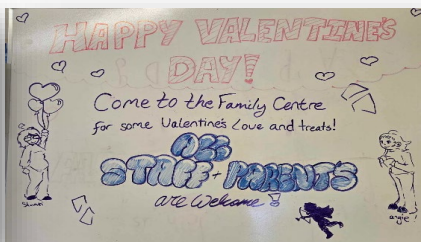 HAPPY VALENTINE'S
DAY!
Come to the Family Centre
for some Valentine's Love and treats!
STAFF + PARENTS
are welcome!
angie